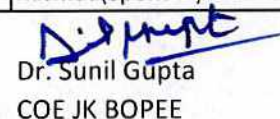 Dr. Sunil Gupta
COE JK BOPEE